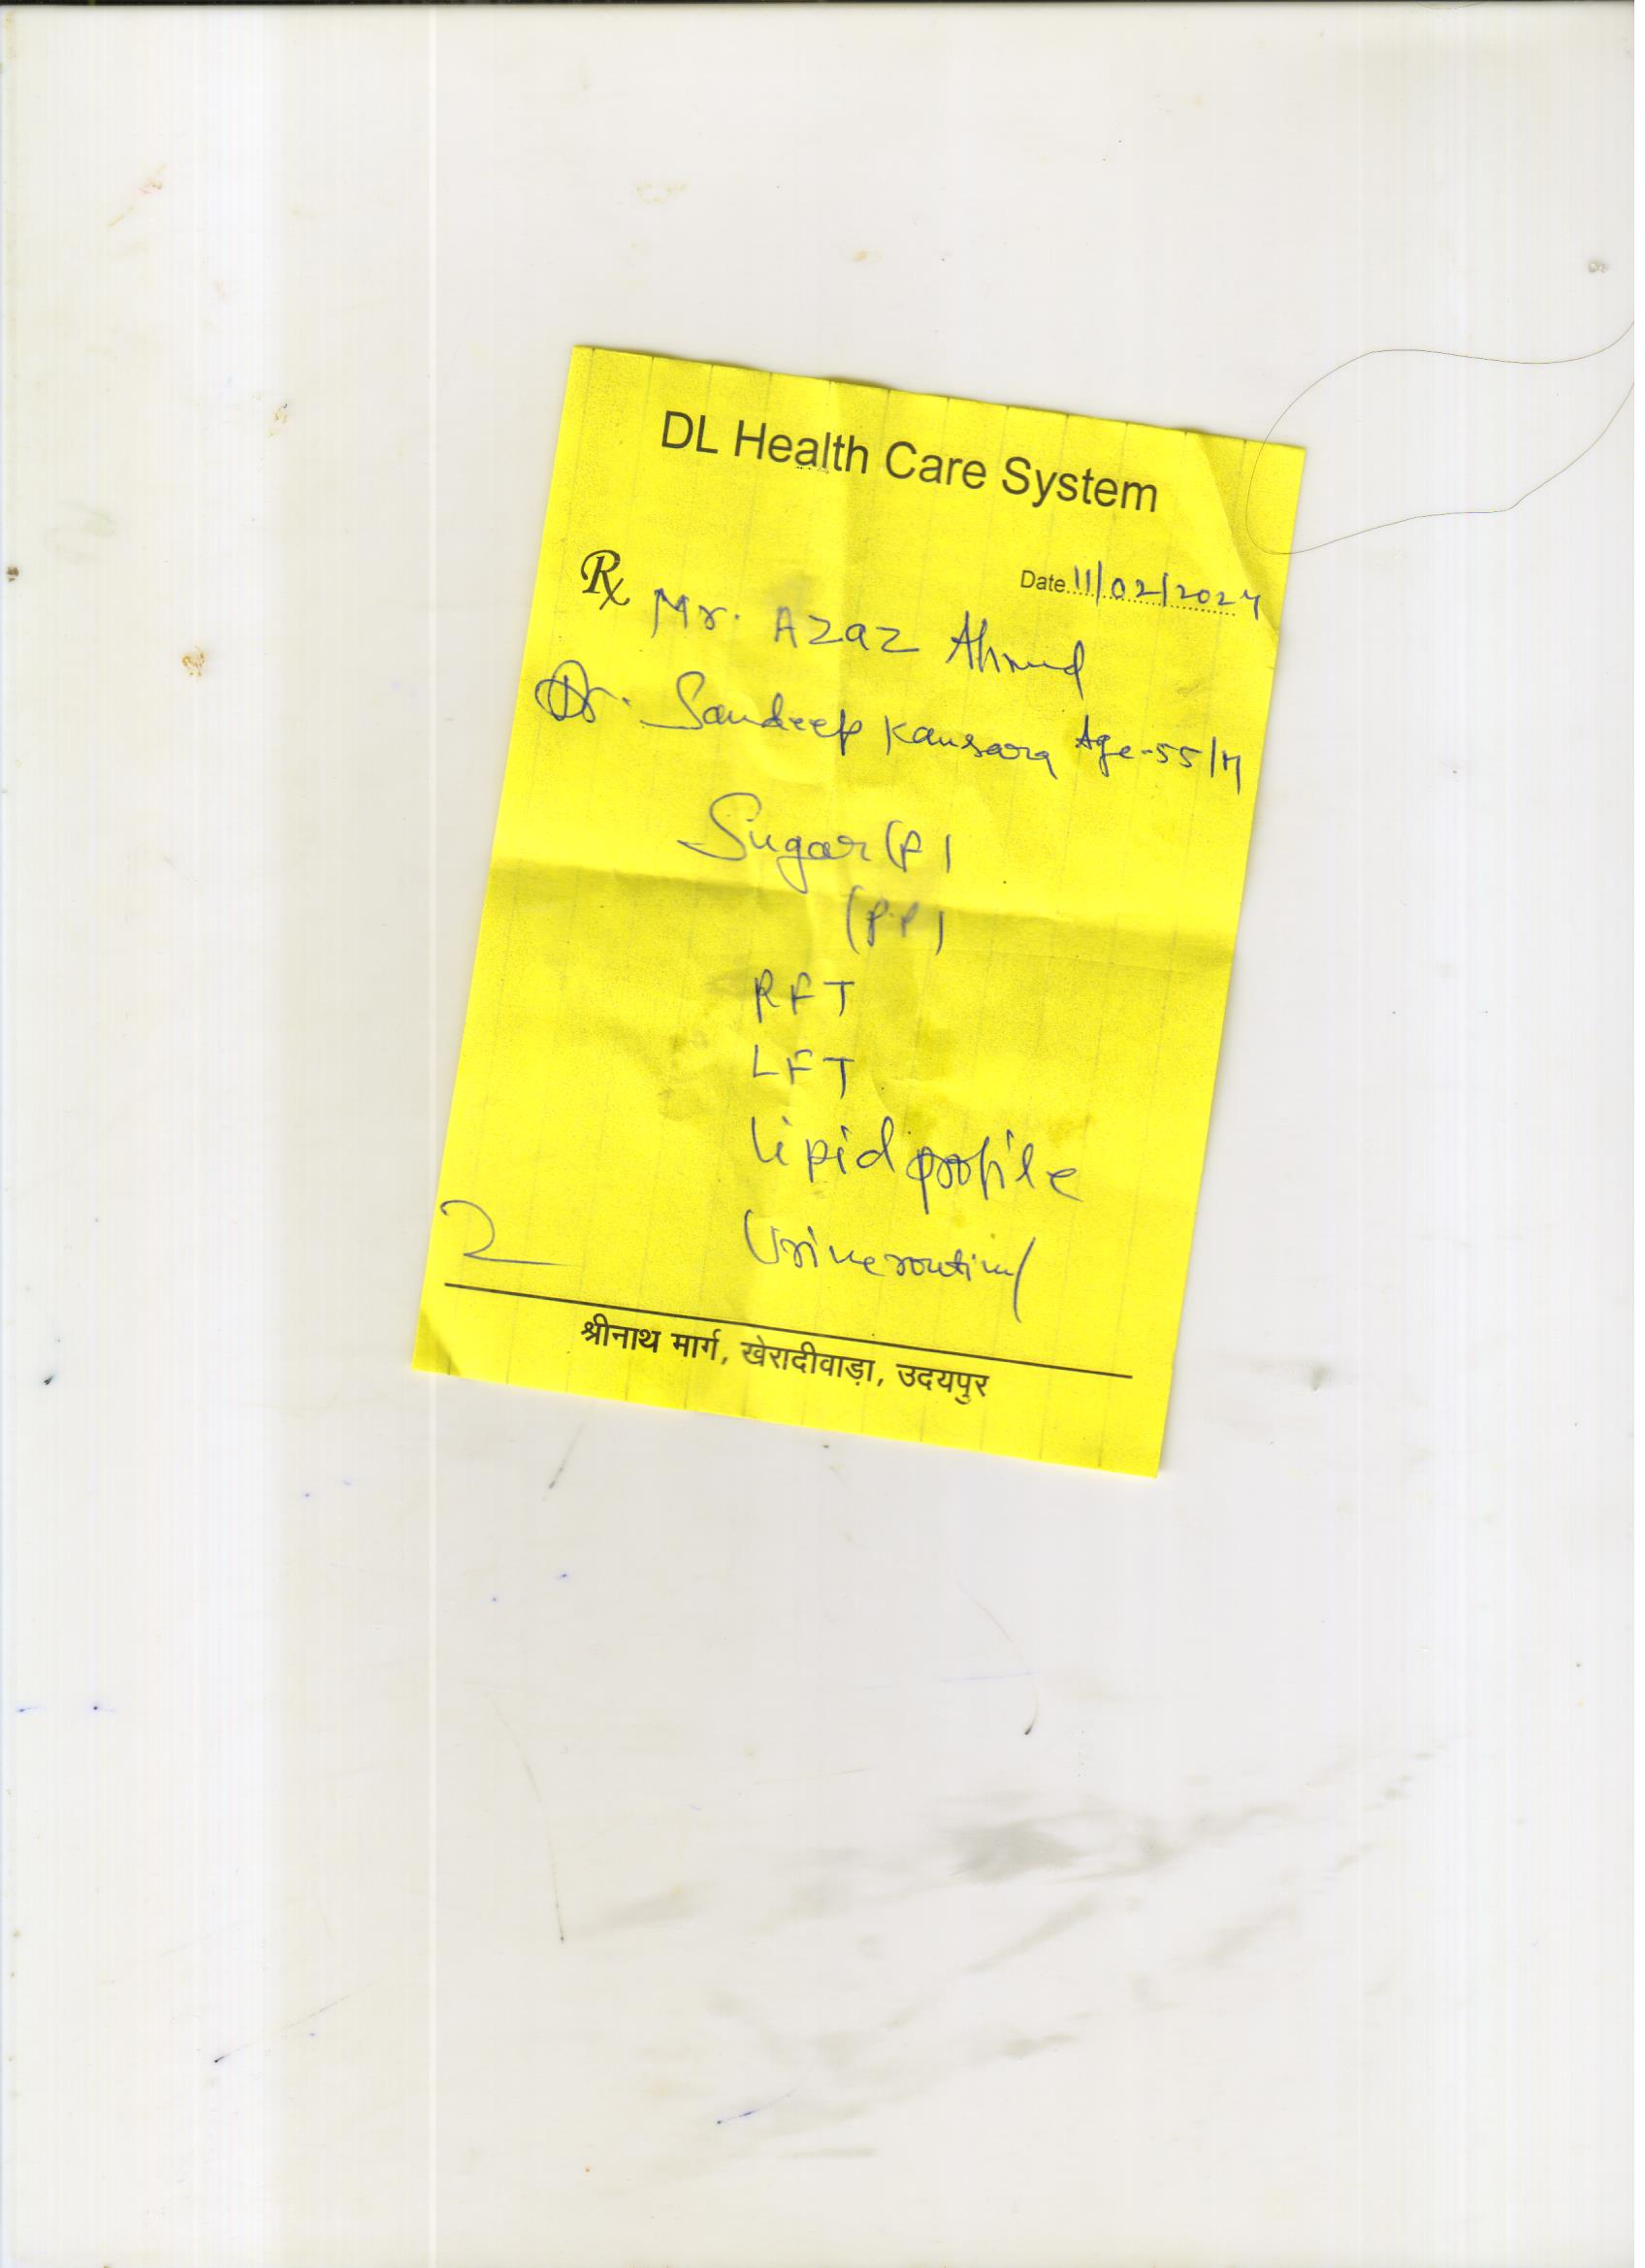 DL Health Care System
Rx
Date 11/02/2024
Mr. Azaz Ahmed
Dr. Sandeep Kansara Age-55/M
Sugar (F)
(PP)
RFT
LFT
Lipid profile
Urine routine
श्रीनाथ मार्ग, खेरादीवाड़ा, उदयपुर